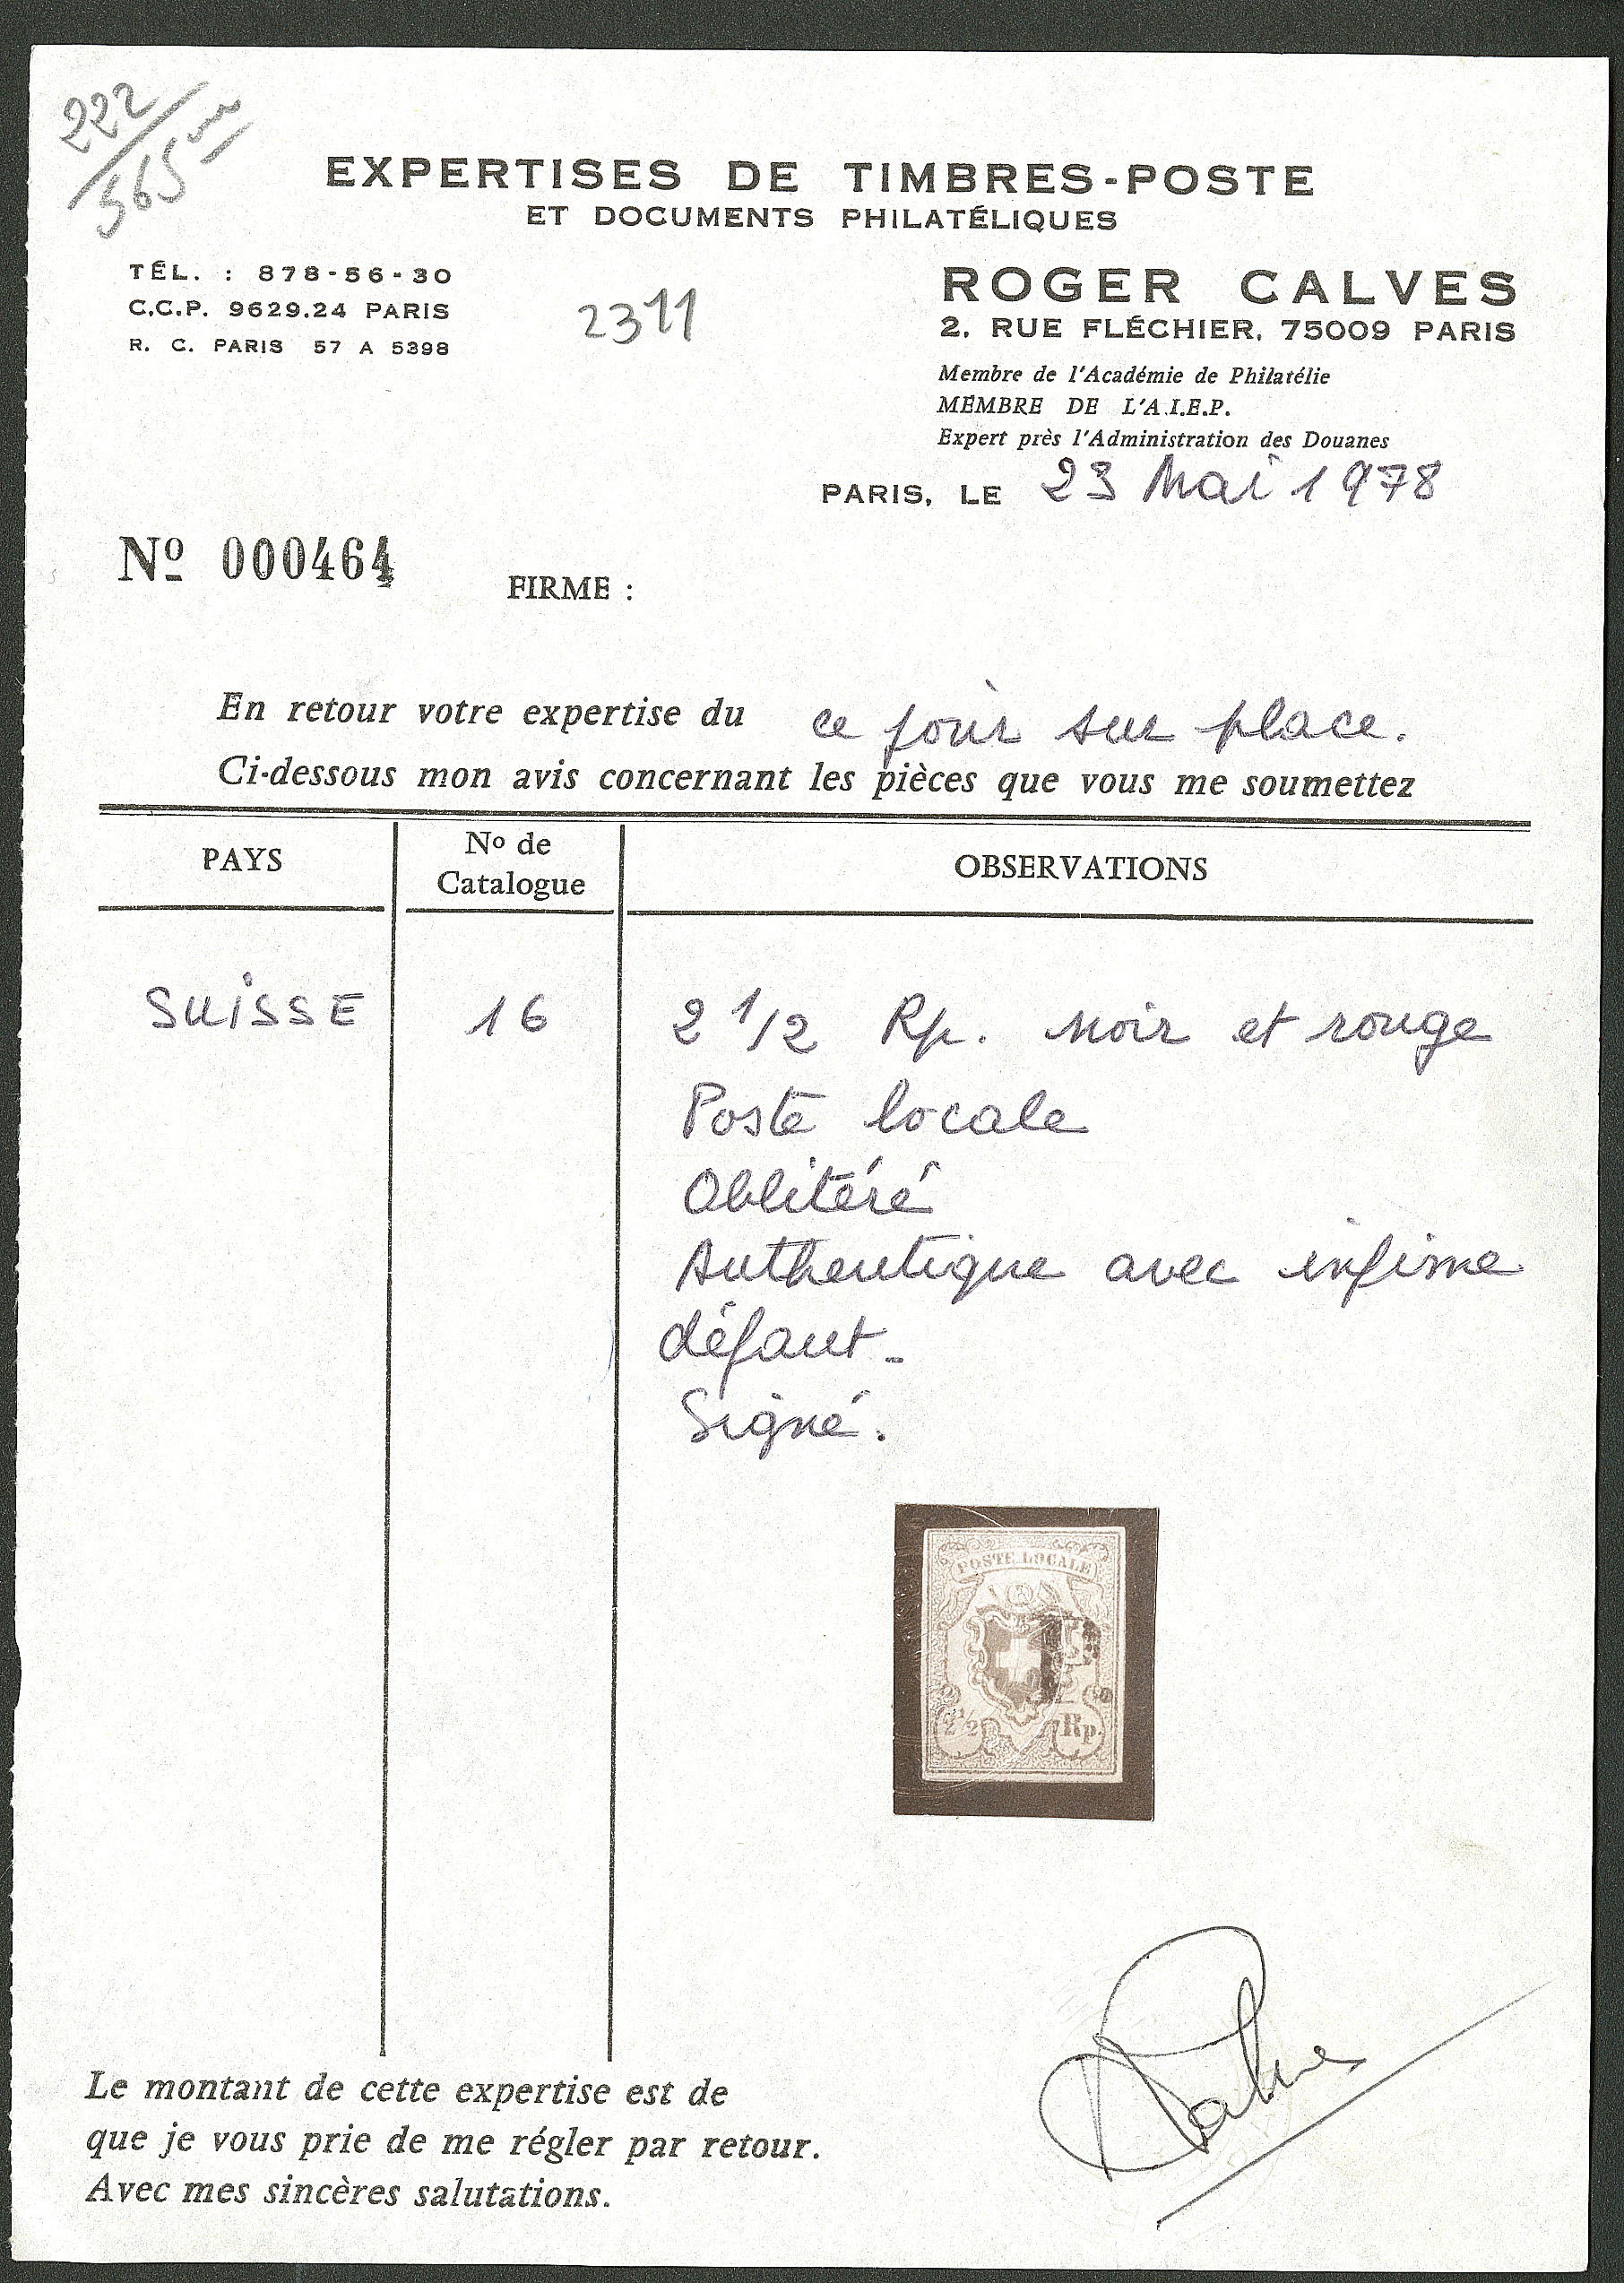 222
565
EXPERTISES DE TIMBRES-POSTE
ET DOCUMENTS PHILATÉLIQUES
TÉL. : 878-56-30
C.C.P. 9629.24 PARIS
R. C. PARIS 57 A 5398
2311
ROGER CALVES
2, RUE FLÉCHIER, 75009 PARIS
Membre de l'Académie de Philatélie
MEMBRE DE L'A.I.E.P.
Expert près l'Administration des Douanes
PARIS, LE 23 Mai 1978
Nº 000464
FIRME :
En retour votre expertise du ce jour sur place.
Ci-dessous mon avis concernant les pièces que vous me soumettez
PAYS
Nº de
Catalogue
OBSERVATIONS
SUISSE 16 2 1/2 Rp. noir et rouge
Poste locale
Oblitéré
Authentique avec infime
défaut -
Signé.
POSTE LOCALE
2 1/2 Rp.
Calves
Le montant de cette expertise est de
que je vous prie de me régler par retour.
Avec mes sincères salutations.